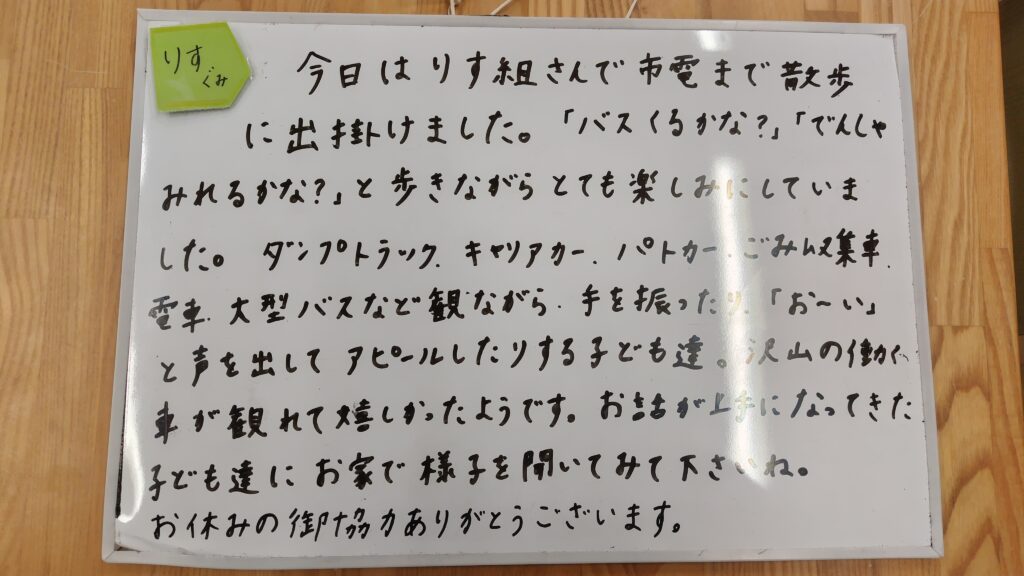 りす
ぐみ
今日はりす組さんで市電まで散歩
に出掛けました。「バスくるかな?」「でんしゃ
みれるかな?」と歩きながらとても楽しみにしていま
した。ダンプトラック、キャリアカー、パトカー、ごみ収集車、
電車、大型バスなど観ながら、手を振ったり、「お~い」
と声を出してアピールしたりする子ども達。沢山の働く
車が観れて嬉しかったようです。お話が上手になってきた
子ども達にお家で様子を聞いてみて下さいね。
お休みの御協力ありがとうございます。